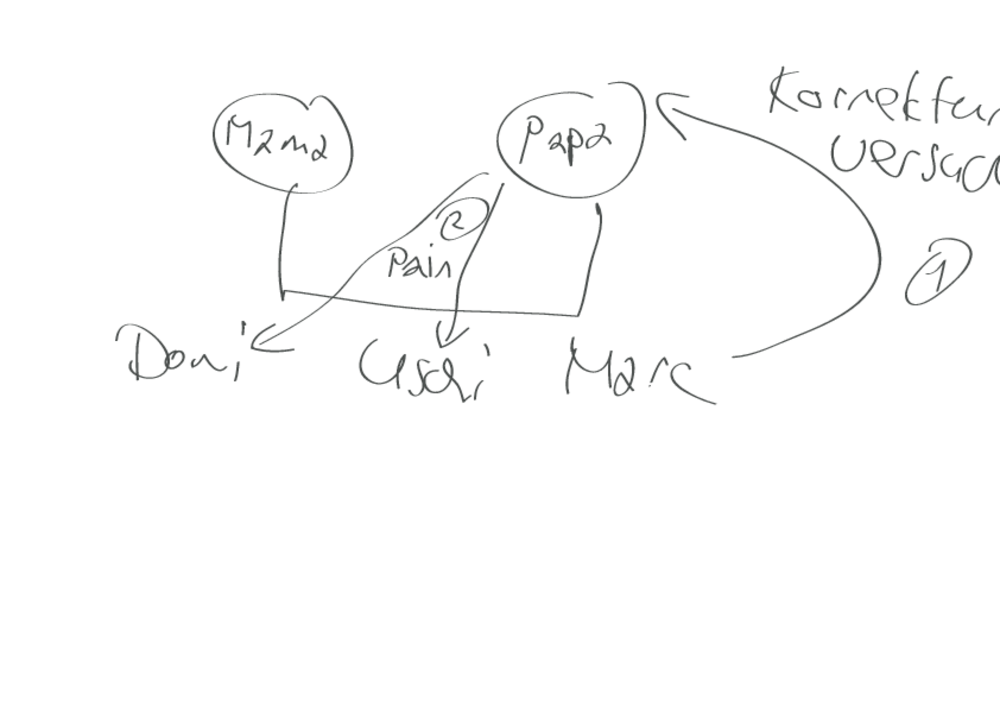 Mama
Papa
Korrektur
versuch
②
Pain
①
Domi
Uschi
Marc